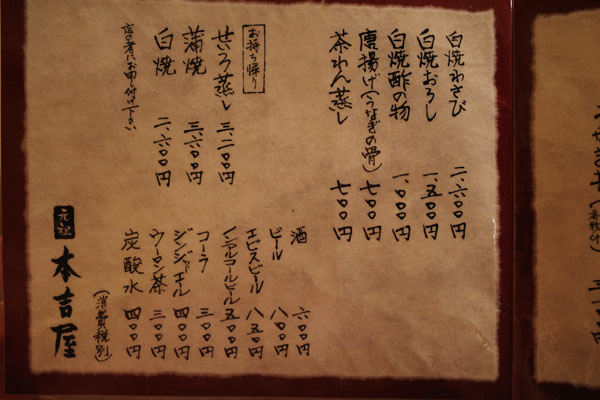 白焼わさび 二、六〇〇円
白焼おろし 一、五〇〇円
白焼酢の物 一、〇〇〇円
唐揚げ(うなぎの骨) 七〇〇円
茶わん蒸し 七〇〇円
お持ち帰り
せいろ蒸し 三、二〇〇円
蒲焼 三、六〇〇円
白焼 二、六〇〇円
店の者にお申し付け下さい
酒 六〇〇円
ビール 八〇〇円
エビスビール 八五〇円
ノンアルコールビール 五〇〇円
コーラ 三〇〇円
ジンジャーエール 四〇〇円
ウーロン茶 三〇〇円
炭酸水 四〇〇円
(消費税別)
元祖
本吉屋